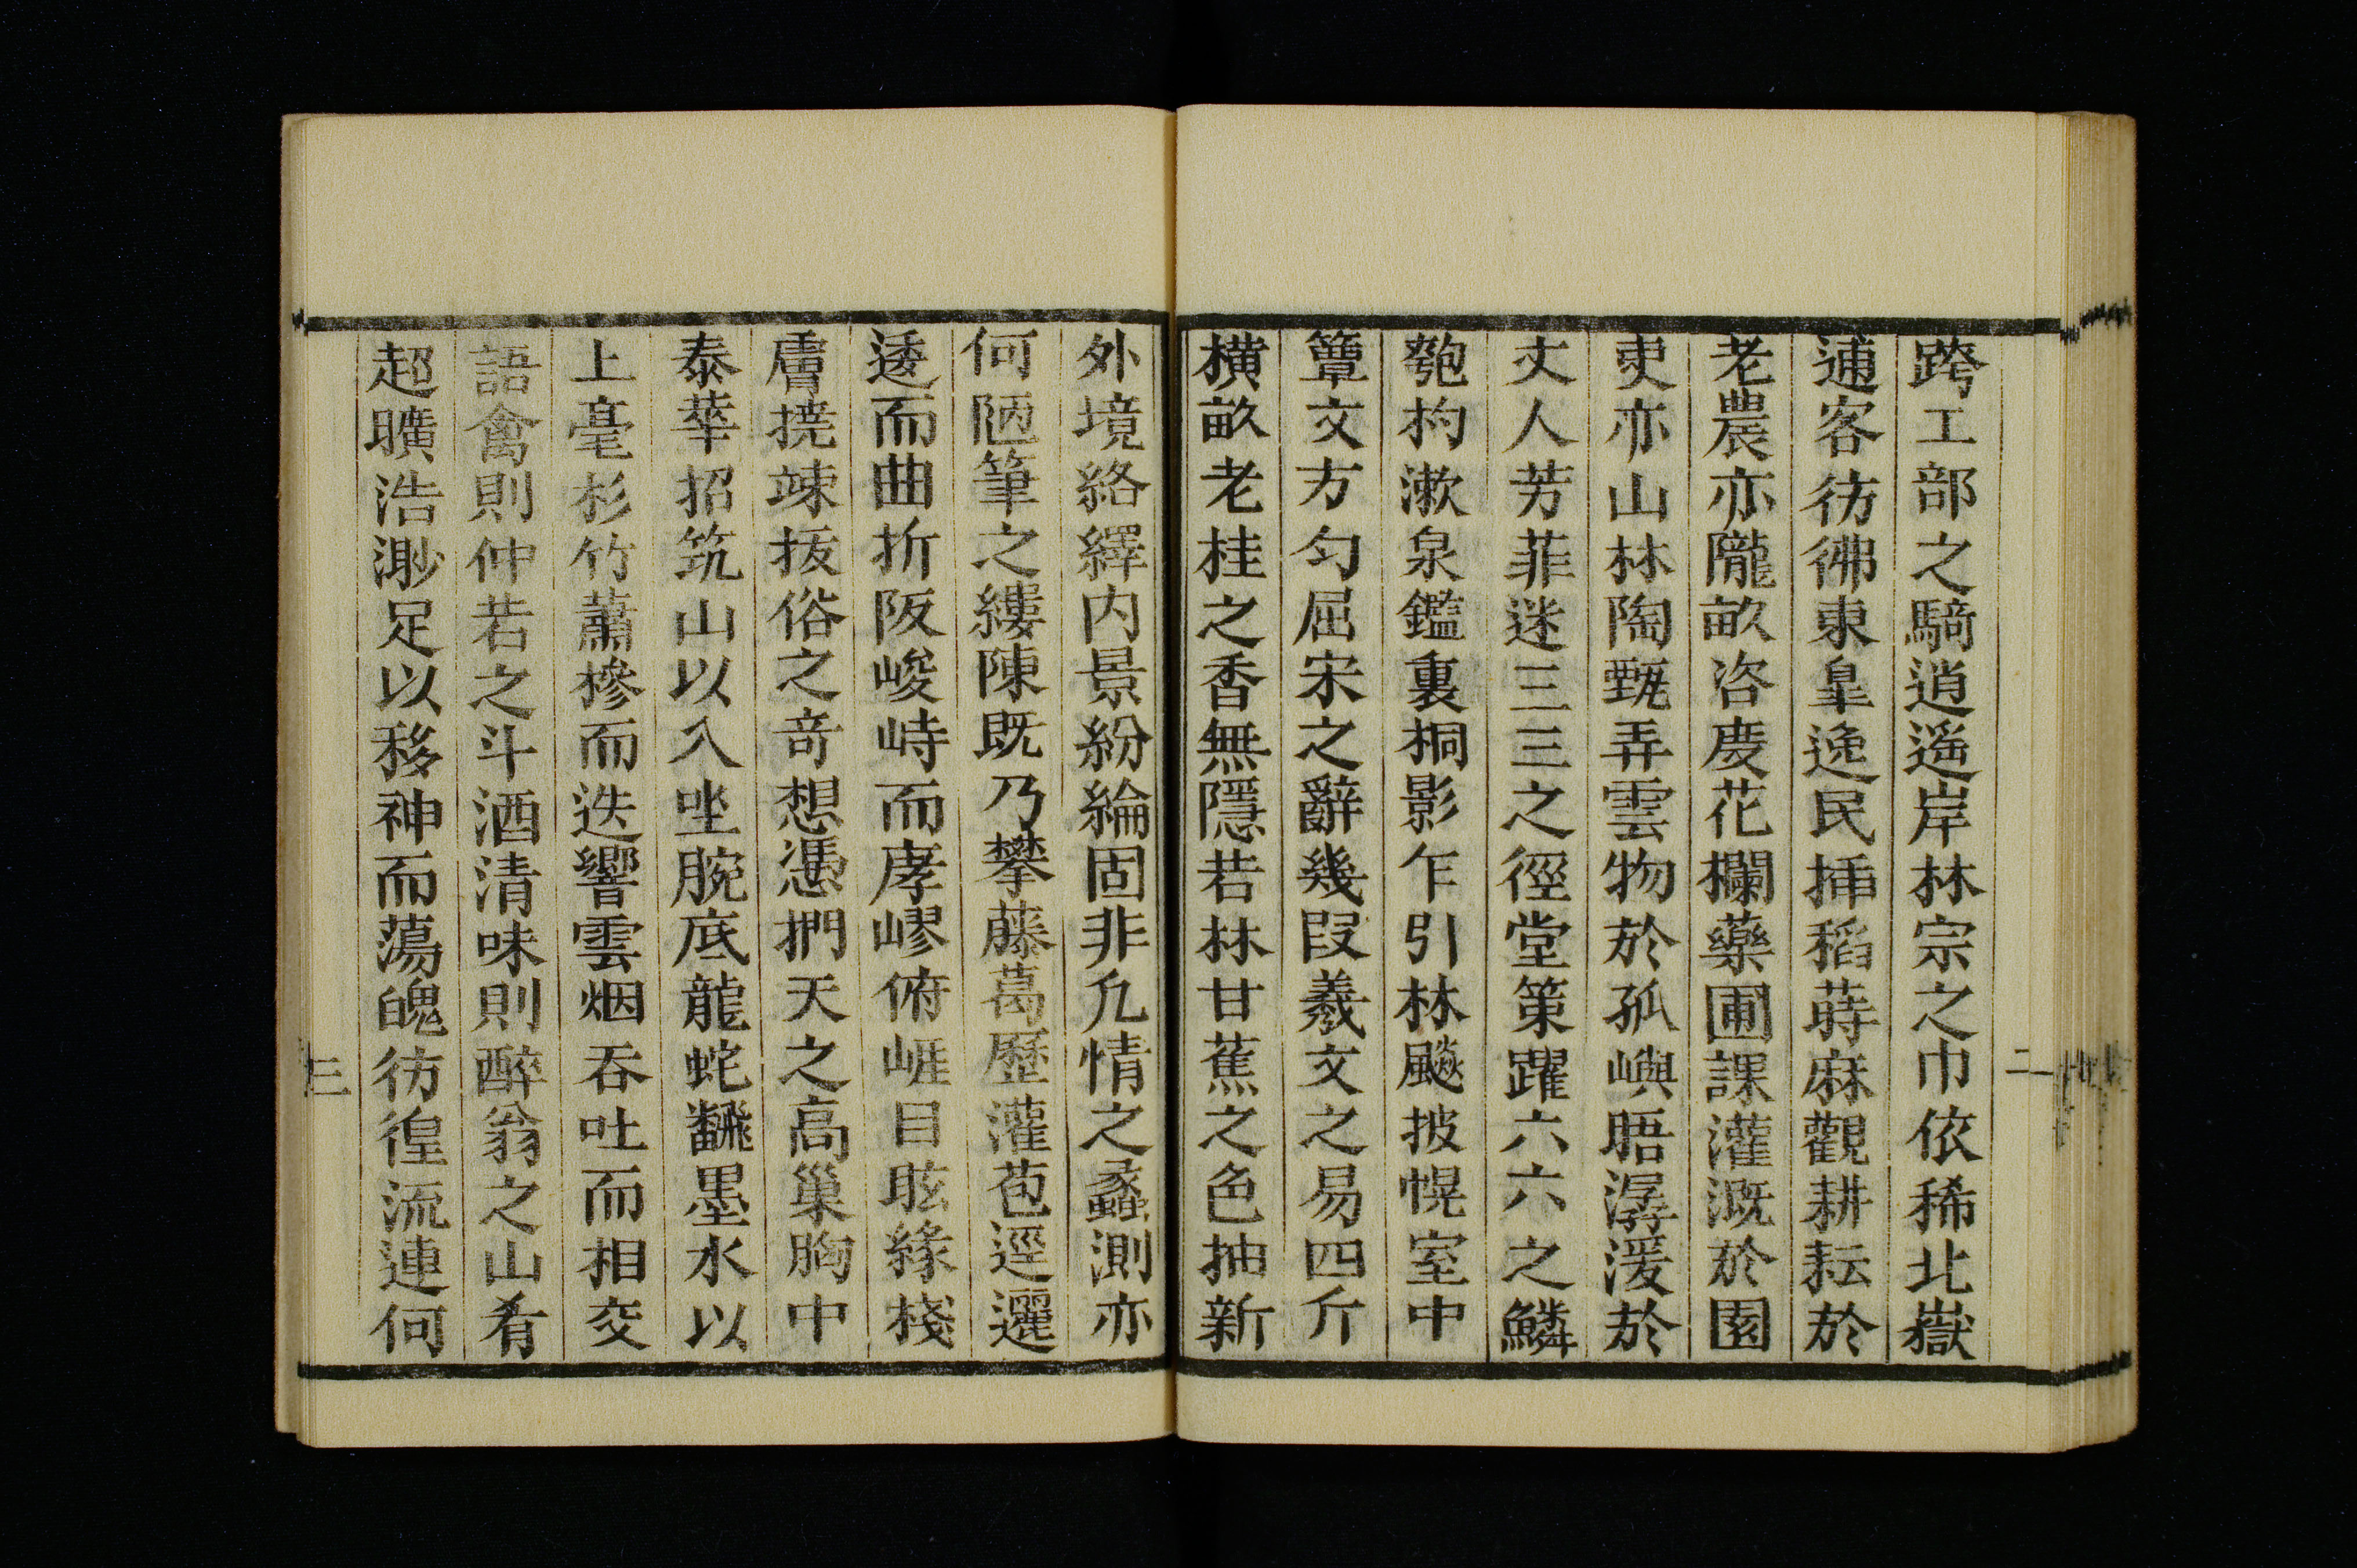 跨工部之騎逍遙岸林宗之巾依稀北嶽
逋客彷彿東皐逸民揷稻蒔麻觀耕耘於
老農亦隴畝咨度花欄藥圃課灌漑於園
吏亦山林陶甄弄雲物於孤嶼晤潺湲於
丈人芳菲迷三三之徑堂策躍六六之鱗
匏杓漱泉鑑裏桐影乍引林飈披幌室中
簟文方勻屈宋之辭幾叚羲文之易四斤
橫畝老桂之香無隱若林甘蕉之色抽新
外境絡繹内景紛綸固非凡情之蠡測亦
何陋筆之縷陳既乃攀藤葛歷灌苞逕邐
逶而曲折阪峻峙而庨嵺俯崕目眩緣棧
膚撓竦拔俗之竒想憑捫天之高巢胸中
泰華招筑山以入坐腕底龍蛇飜墨水以
上毫杉竹蕭槮而迭響雲烟吞吐而相交
語禽則仲若之斗酒清味則醉翁之山肴
超曠浩渺足以移神而蕩魄彷徨流連何
二
三